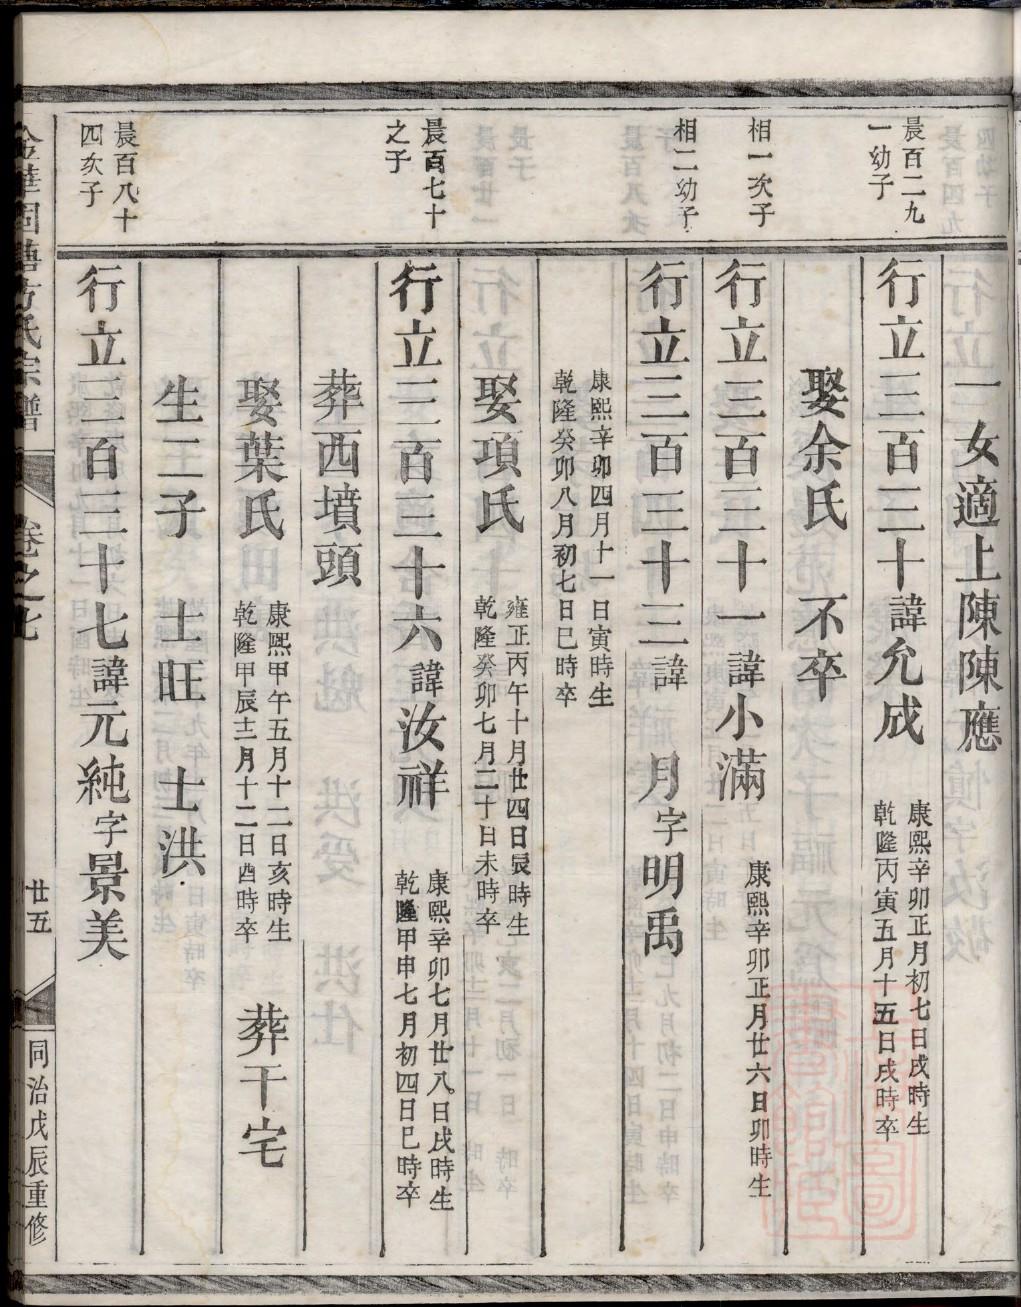 一女適上陳陳應
晨百二九
一幼子
行立三百三十諱允成
康熙辛卯正月初七日戌時生
乾隆丙寅五月十五日戌時卒
娶余氏 不卒
相一次子
行立三百三十一諱小滿
康熙辛卯正月廿六日卯時生
相二幼子
行立三百三十三諱 月字明禹
康熙辛卯四月十一日寅時生
乾隆癸卯八月初七日巳時卒
娶項氏
雍正丙午十月廿四日辰時生
乾隆癸卯七月二十日未時卒
晨百七十
之子
行立三百三十六諱汝祥
康熙辛卯七月廿八日戌時生
乾隆甲申七月初四日巳時卒
葬西墳頭
娶葉氏
康熙甲午五月十二日亥時生
乾隆甲辰十二月十二日酉時卒
葬干宅
生二子 士旺 士洪
晨百八十
四次子
行立三百三十七諱元純字景美
卷之七
廿五
同治戊辰重修